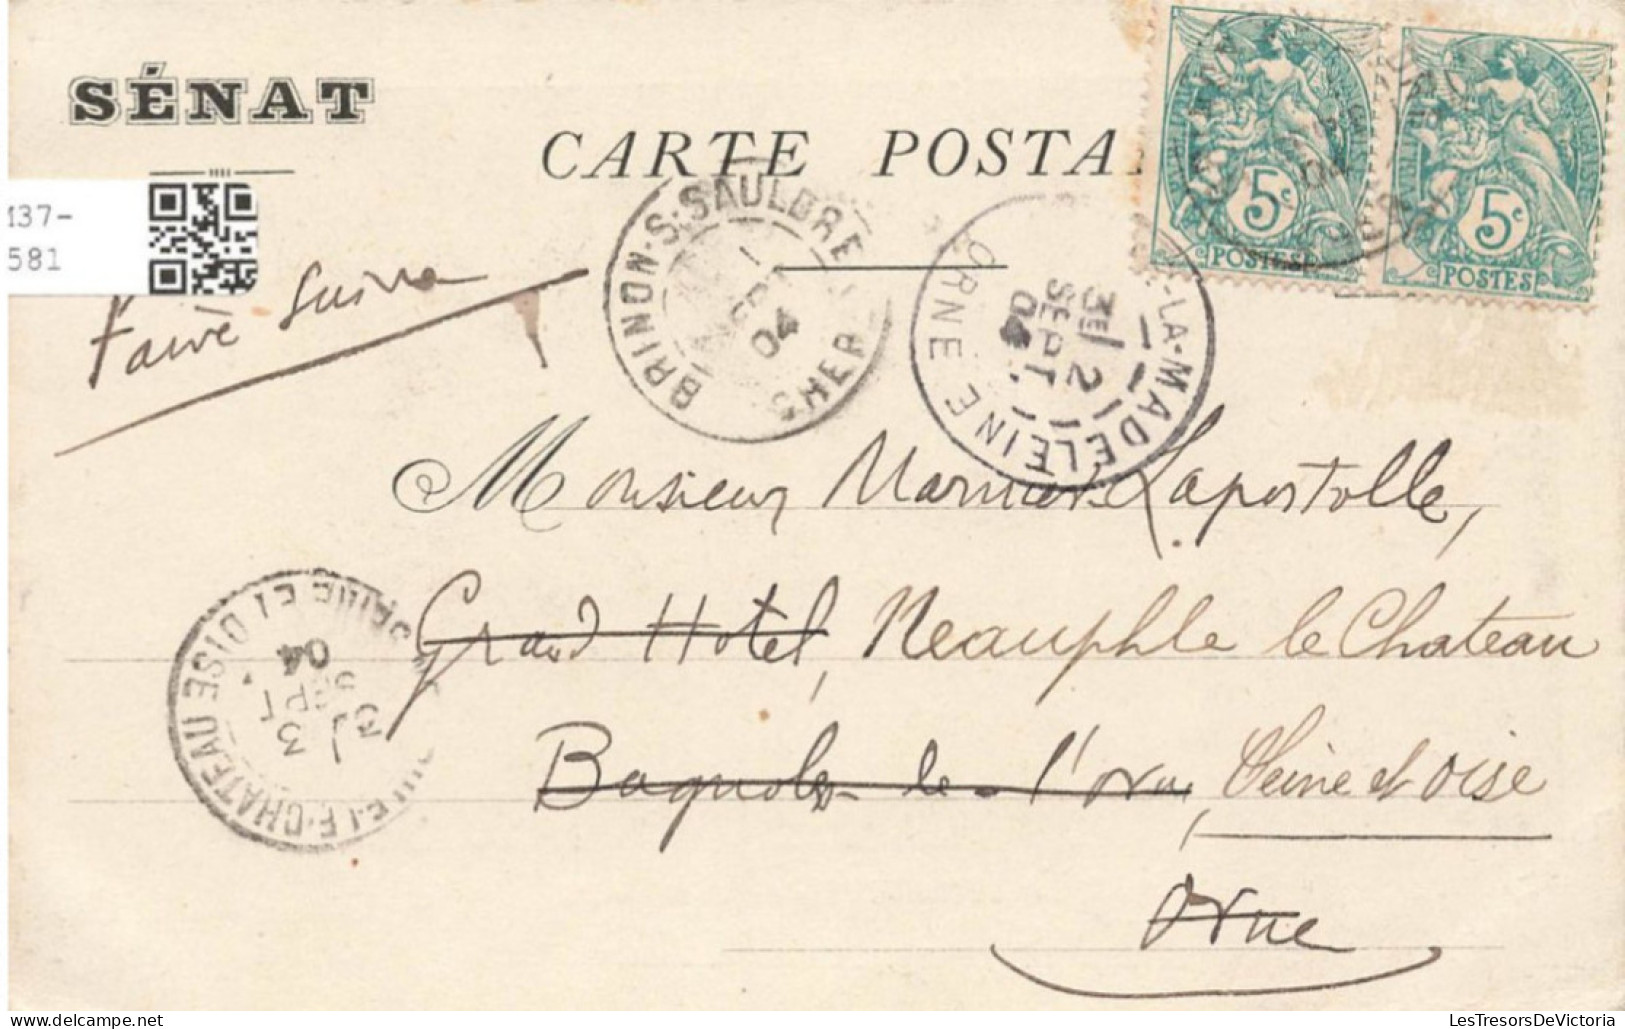 SÉNAT
CARTE POSTA
137-
581
Faire suivre
BRINON-S-SAULDRE
CHER
SEPT
04
LA-MADELEINE
ORNE
3E
2
SEPT
04
5c
POSTES
5c
POSTES
Monsieur Marnier Lapostolle,
Grand Hotel, Neauphle le Chateau
Bagnoles-de-l'Orne, Seine et Oise
Orne
LE-CHATEAU SEINE ET OISE
3
3
SEPT
04
LesTresorsDeVictoria